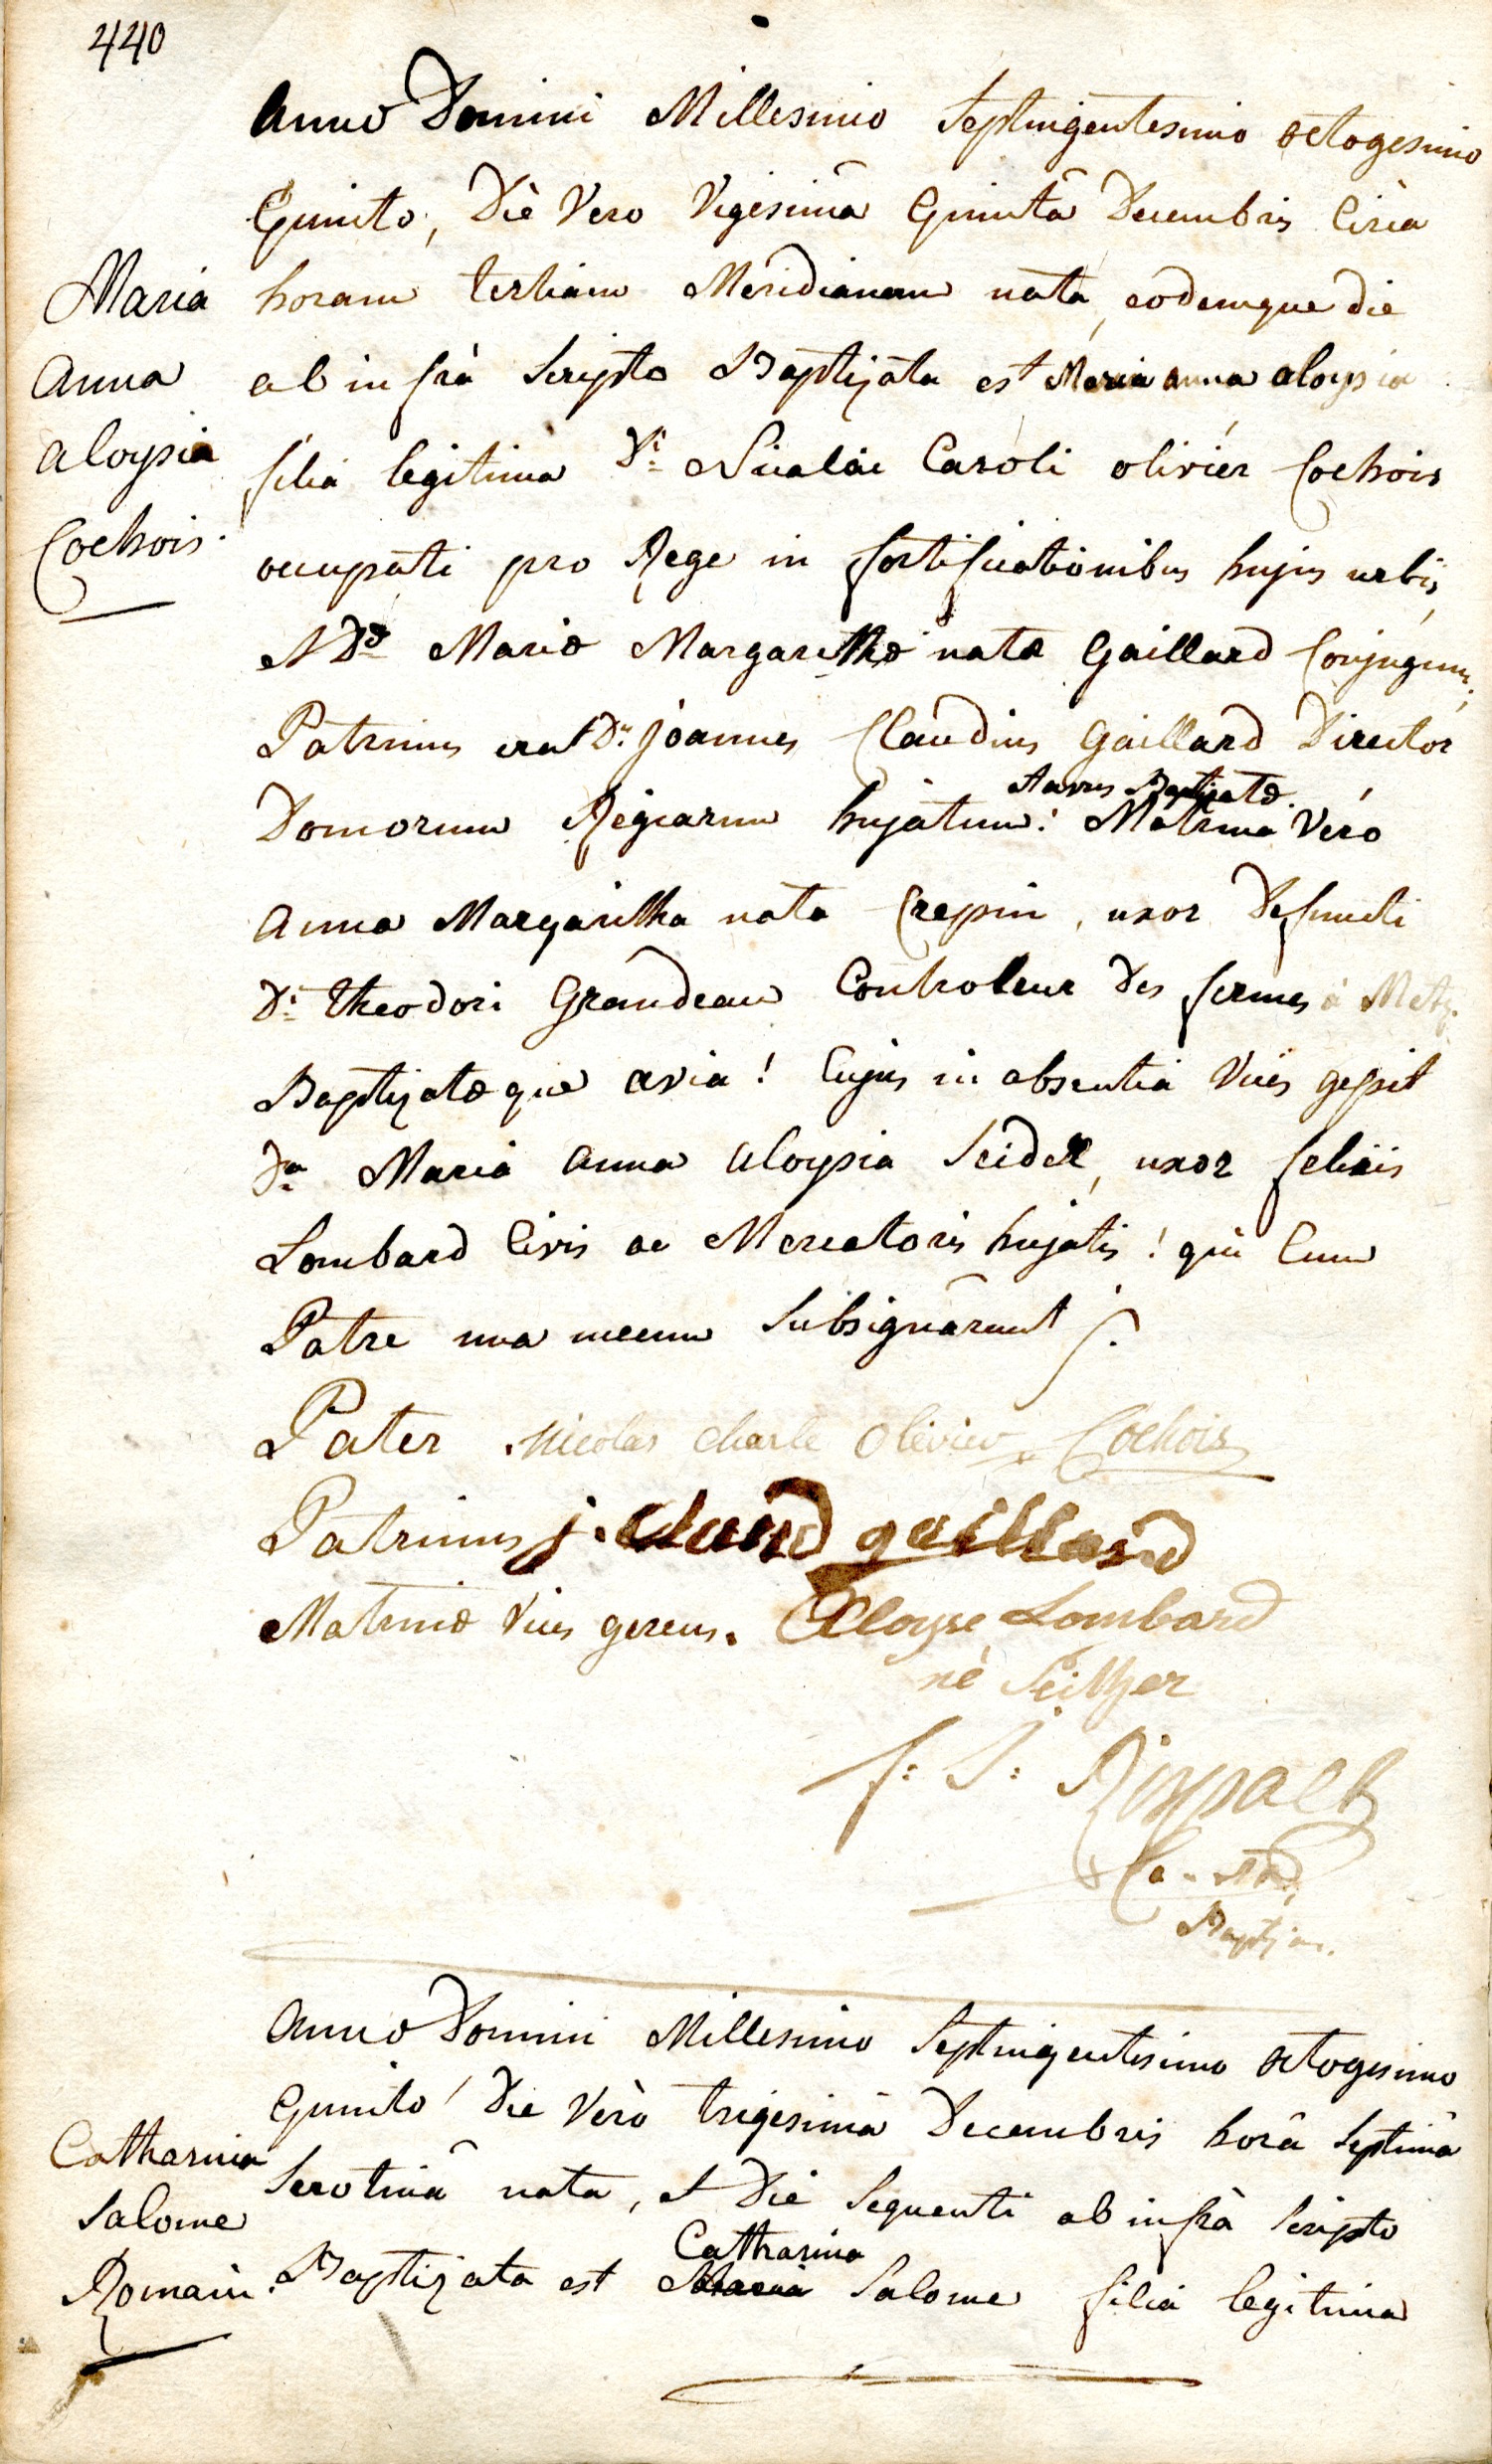 440
Anno Domini Millesimo Septingentesimo octogesimo
Quinto, Diè Vero Vigesimâ Quintâ Decembris Circa
horam tertiam Meridianam nata, eodemque die
ab infrà Scripto Baptizata est Maria anna aloysia
filia legitima Di Nicolai Caroli olivier Cochois
occupati pro Rege in fortificationibus hujus urbis,
et Dæ Mariæ Margarethæ natæ Gaillard Conjugum;
Patrinus erat Ds Joannes Claudius Gaillard Director
Avus Baptizatæ.
Domorum Regiarum hujatum! Matrina Vero
Anna Margaritha nata Crepin, uxor Defuncti
Di Theodori Grandeau Controleur Des fermes à Metz.
Baptizatæque avia! Cujus in absentia Vices gessit
Da Maria Anna Aloysia Seidel, uxor felicis
Lombard Civis ac Mercatoris hujatis! qui Cum
Patre una mecum Subsignârunt
Maria
Anna
aloysia
Cochois.
Pater Nicolas Charle Olivier Cochois
Patrinus j. claud gaillard
Matrinæ Vices gerens. Aloyse Lombard
né Seitzer
f: J:
Anno Domini Millesimo Septingentesimo octogesimo
Quinto Die Verò trigesimâ Decembris horâ Septimâ
Serotinâ nata, et Die Sequenti ab infrà Scripto
Catharina
Baptizata est Maria Salome filia legitima
Catharina
Salome
Romain.